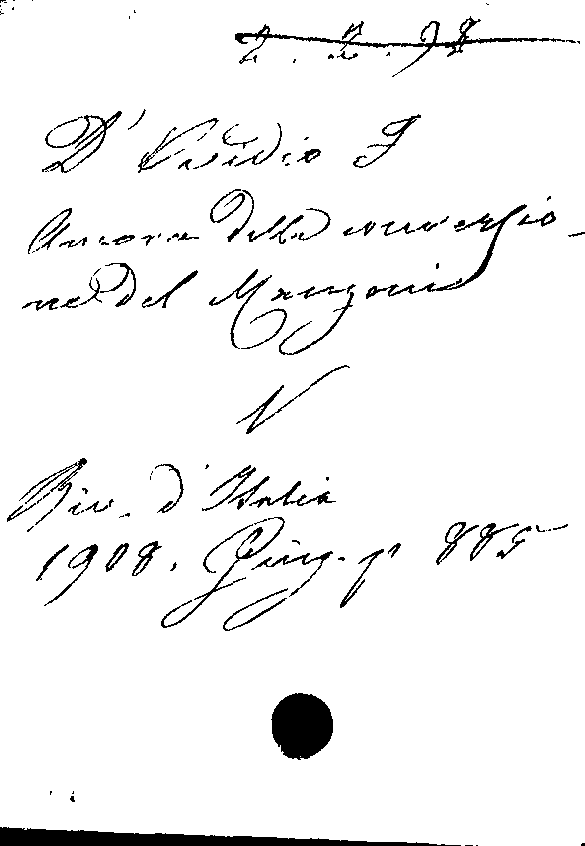 2. 2. 98
D' Ovidio F
Ancora della conversio-
ne del Manzoni
V
Riv. d'Italia
1908. Giug. p 885